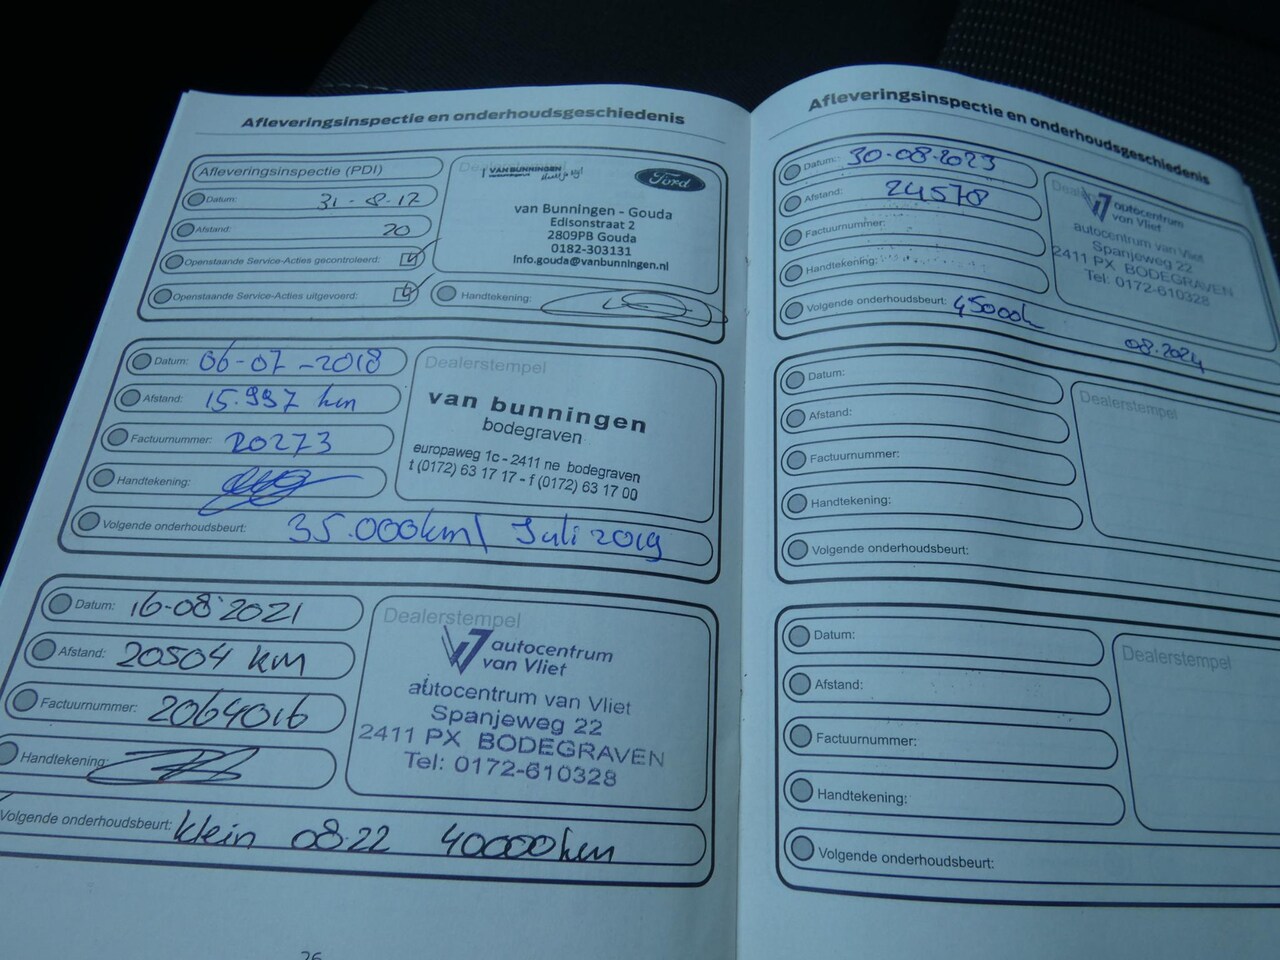 Afleveringsinspectie en onderhoudsgeschiedenis
Afleveringsinspectie (PDI)
Datum: 31-8-17
Afstand: 20
Openstaande Service-Acties gecontroleerd:
Openstaande Service-Acties uitgevoerd:
Dealerstempel
VAN BUNNINGEN
Ford
van Bunningen - Gouda
Edisonstraat 2
2809PB Gouda
0182-303131
Info.gouda@vanbunningen.nl
Handtekening:
Datum: 06-07-2018
Afstand: 15.997 km
Factuurnummer: 20273
Handtekening:
Volgende onderhoudsbeurt: 35.000km/ Juli 2019
Dealerstempel
van bunningen
bodegraven
europaweg 1c - 2411 ne bodegraven
t (0172) 63 17 17 - f (0172) 63 17 00
Datum: 16-08-2021
Afstand: 20504 KM
Factuurnummer: 2064016
Handtekening:
Volgende onderhoudsbeurt: klein 08.22 40000km
Dealerstempel
autocentrum
van Vliet
autocentrum van Vliet
Spanjeweg 22
2411 PX BODEGRAVEN
Tel: 0172-610328
26
Afleveringsinspectie en onderhoudsgeschiedenis
Datum: 30-08-2023
Afstand: 24578
Factuurnummer:
Handtekening:
Volgende onderhoudsbeurt: 45000k
08.2024
autocentrum
van Vliet
autocentrum van Vliet
Spanjeweg 22
2411 PX BODEGRAVEN
Tel: 0172-610328
Datum:
Afstand:
Factuurnummer:
Handtekening:
Volgende onderhoudsbeurt:
Dealerstempel
Datum:
Afstand:
Factuurnummer:
Handtekening:
Volgende onderhoudsbeurt:
Dealerstempel